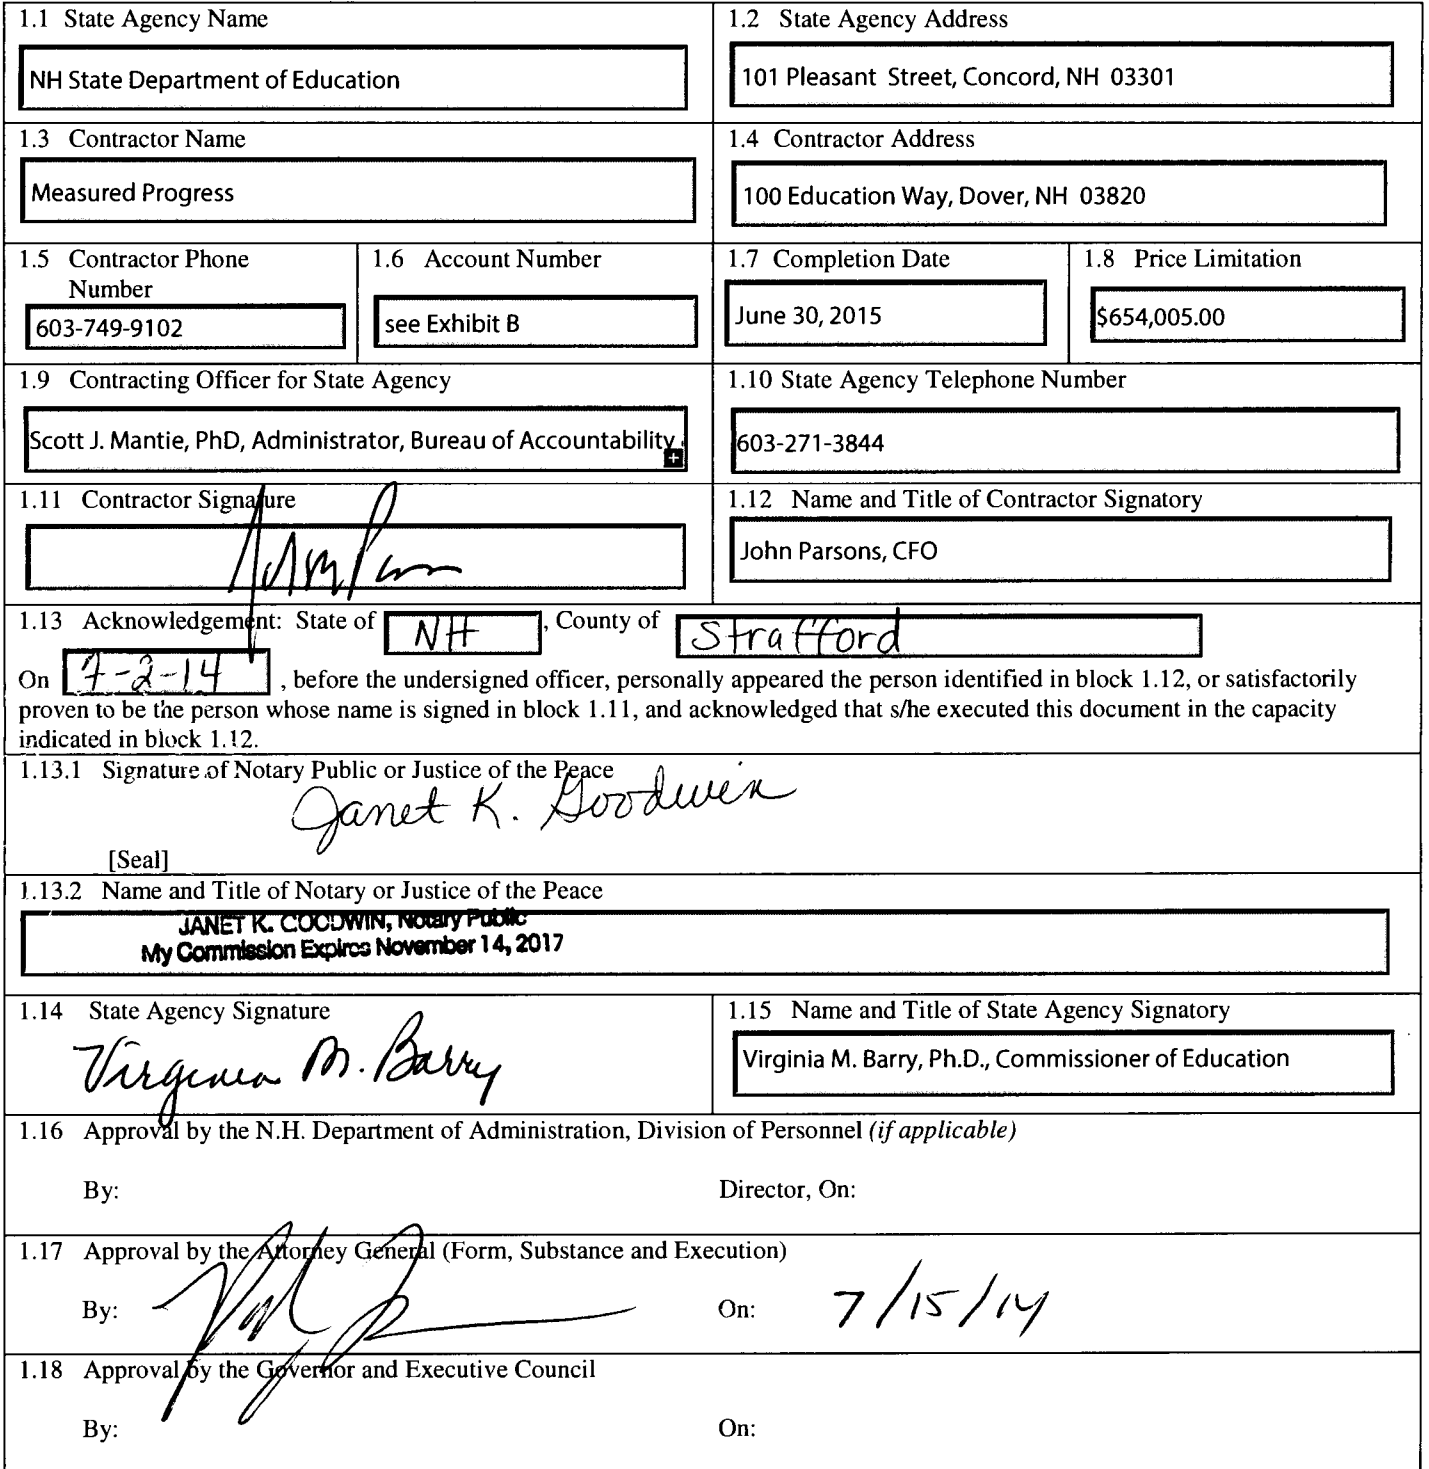 1.1 State Agency Name
NH State Department of Education
1.2 State Agency Address
101 Pleasant Street, Concord, NH 03301
1.3 Contractor Name
Measured Progress
1.4 Contractor Address
100 Education Way, Dover, NH 03820
1.5 Contractor Phone
Number
603-749-9102
1.6 Account Number
see Exhibit B
1.7 Completion Date
June 30, 2015
1.8 Price Limitation
$654,005.00
1.9 Contracting Officer for State Agency
Scott J. Mantie, PhD, Administrator, Bureau of Accountability
1.10 State Agency Telephone Number
603-271-3844
1.11 Contractor Signature
1.12 Name and Title of Contractor Signatory
John Parsons, CFO
1.13 Acknowledgement: State of NH, County of Strafford
On 7-2-14, before the undersigned officer, personally appeared the person identified in block 1.12, or satisfactorily
proven to be the person whose name is signed in block 1.11, and acknowledged that s/he executed this document in the capacity
indicated in block 1.12.
1.13.1 Signature of Notary Public or Justice of the Peace
Janet K. Goodwin
[Seal]
1.13.2 Name and Title of Notary or Justice of the Peace
JANET K. GOODWIN, Notary Public
My Commission Expires November 14, 2017
1.14 State Agency Signature
Virginia M. Barry
1.15 Name and Title of State Agency Signatory
Virginia M. Barry, Ph.D., Commissioner of Education
1.16 Approval by the N.H. Department of Administration, Division of Personnel (if applicable)
By:
Director, On:
1.17 Approval by the Attorney General (Form, Substance and Execution)
By:
On: 7/15/14
1.18 Approval by the Governor and Executive Council
By:
On: